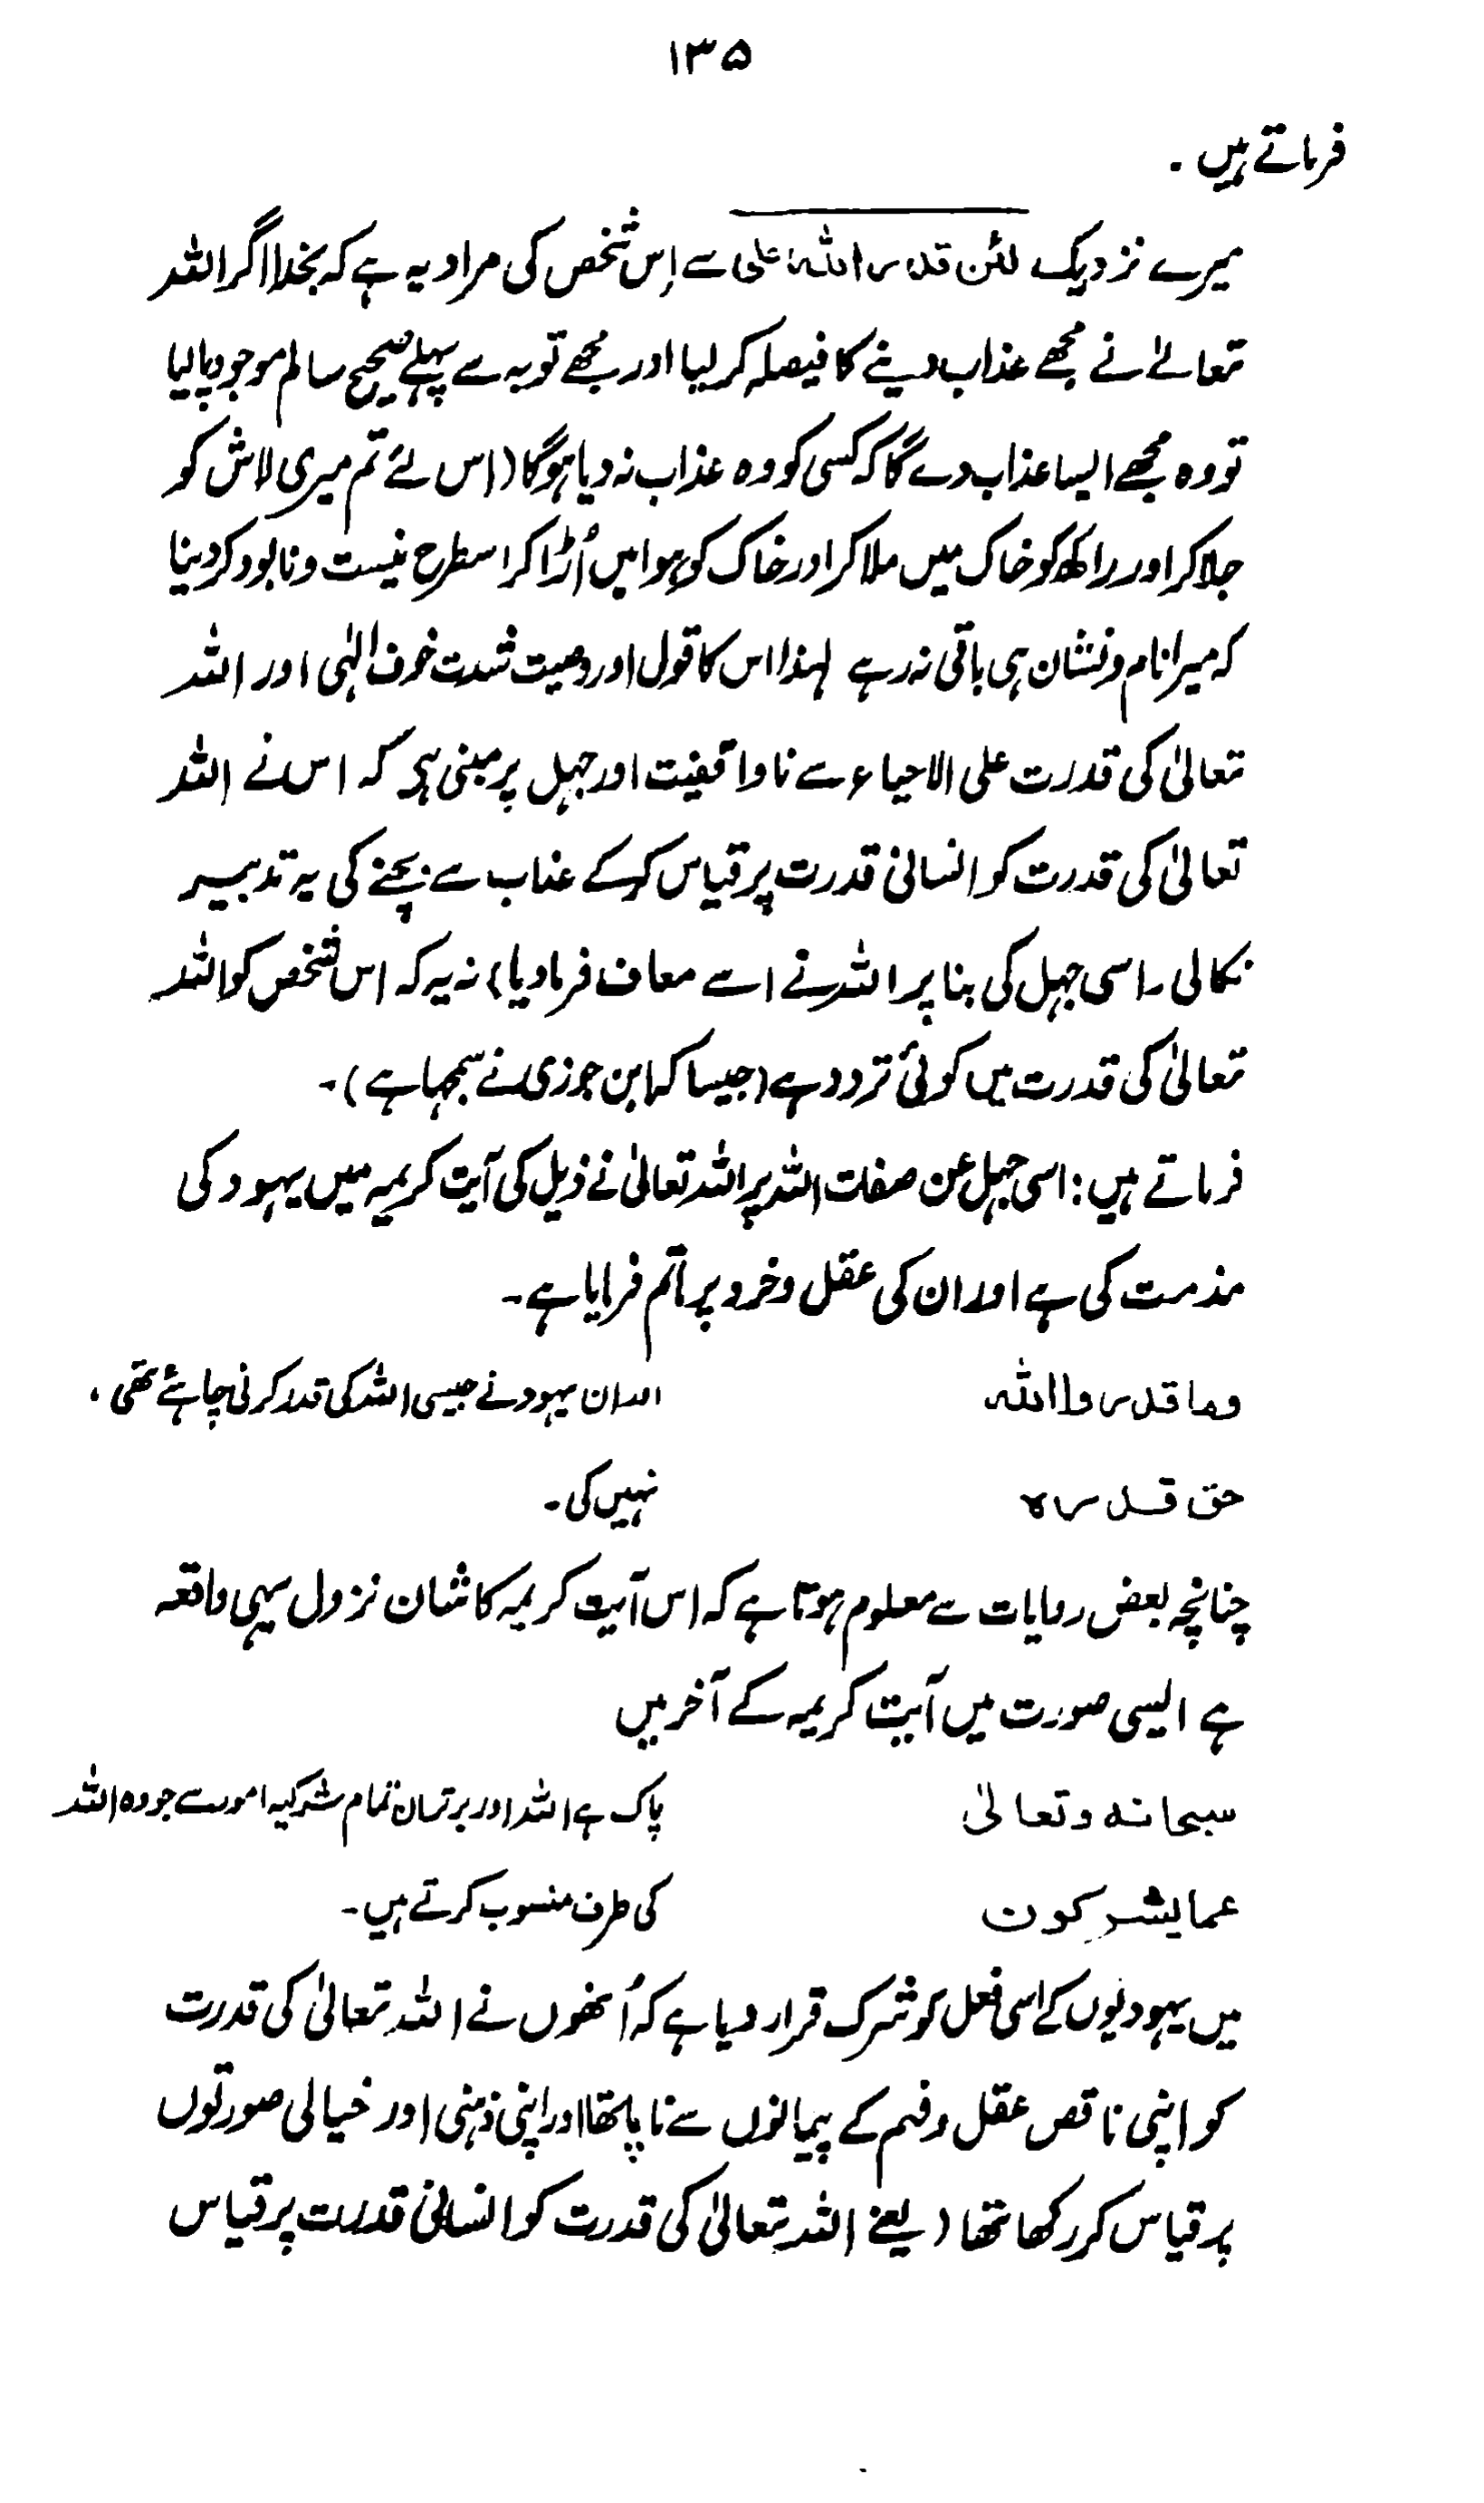 ۱۳۵
فرماتے ہیں .
میرے نزدیک لئن قدر اللہ علی سے اِس شخص کی مراد یہ ہے کہ بخدا اگر اللہ
تعالےٰ نے مجھے عذاب دینے کا فیصلہ کر لیا اور مجھے توبہ سے پہلے صحیح سالم موجود پا لیا
تو وہ مجھے ایسا عذاب دے گا کہ کسی کو وہ عذاب نہ دیا ہوگا (اس لئے تم میری لاش کو
جلا کر اور راکھ کو خاک میں ملا کر اور خاک کو ہوا میں اُڑا کر اسطرح نیست و نابود کر دینا
کہ میرا نام و نشان ہی باقی نہ رہے لہذا اس کا قول اور وصیت شدت خوف الٰہی اور اللہ
تعالیٰ کی قدرت علی الاحیاء سے ناواقفیت اور جہل پر مبنی ہے کہ اس نے اللہ
تعالیٰ کی قدرت کو انسانی قدرت پر قیاس کر کے عذاب سے بچنے کی یہ تدبیر
نکالی (اسی جہل کی بنا پر اللہ نے اسے معاف فرما دیا) نہ یہ کہ اس شخص کو اللہ
تعالیٰ کی قدرت میں کوئی تردد ہے (جیسا کہ ابن جوزی نے سمجھا ہے)۔
فرماتے ہیں: اسی جہل عن صفات اللہ پر اللہ تعالیٰ نے ذیل کی آیت کریمہ میں یہود کی
مذمت کی ہے اور ان کی عقل و خرد پر ماتم فرمایا ہے۔
وما قدروا اللہ اور ان یہود نے جیسی اللہ کی قدر کرنی چاہئے تھی ،
حق قدرہ نہیں کی۔
چنانچہ بعض روایات سے معلوم ہوتا ہے کہ اس آیت کریمہ کا شان نزول یہی واقعہ
ہے ایسی صورت میں آیت کریمہ کے آخر میں
سبحانہ وتعالیٰ پاک ہے اللہ اور برتر ان تمام شرکیہ امور سے جو وہ اللہ
عما یشرکون کی طرف منسوب کرتے ہیں۔
میں یہودیوں کے اسی فعل کو شرک قرار دیا ہے کہ اُنھوں نے اللہ تعالیٰ کی قدرت
کو اپنی ناقص عقل و فہم کے پیمانوں سے ناپا تھا اور اپنی ذہنی اور خیالی صورتوں
پر قیاس کر رکھا تھا (یعنے اللہ تعالیٰ کی قدرت کو انسانی قدرت پر قیاس